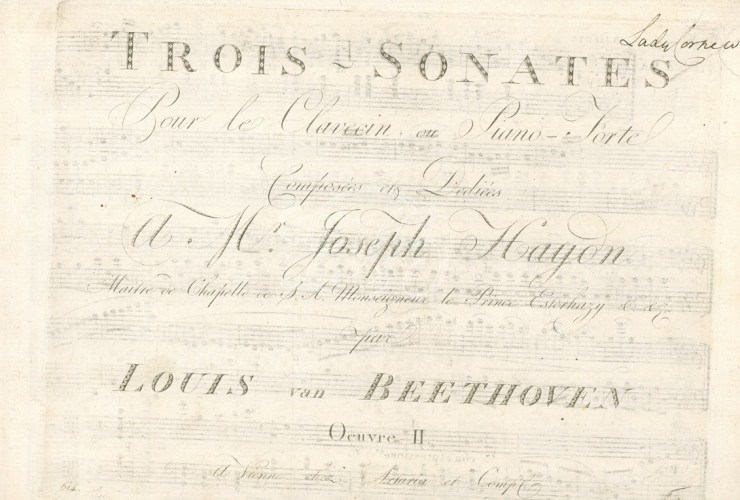 Lady Corne
TROIS ~ SONATES
Pour le Clavecin ou Piano-Forte
Composées et Dediées
A Mr. Joseph Haydn
Maitre de Chapelle de S. A. Monseigneur le Prince Esterhazy & &c.
par
LOUIS van BEETHOVEN
Oeuvre II
A Vienne chez Artaria et Comp.